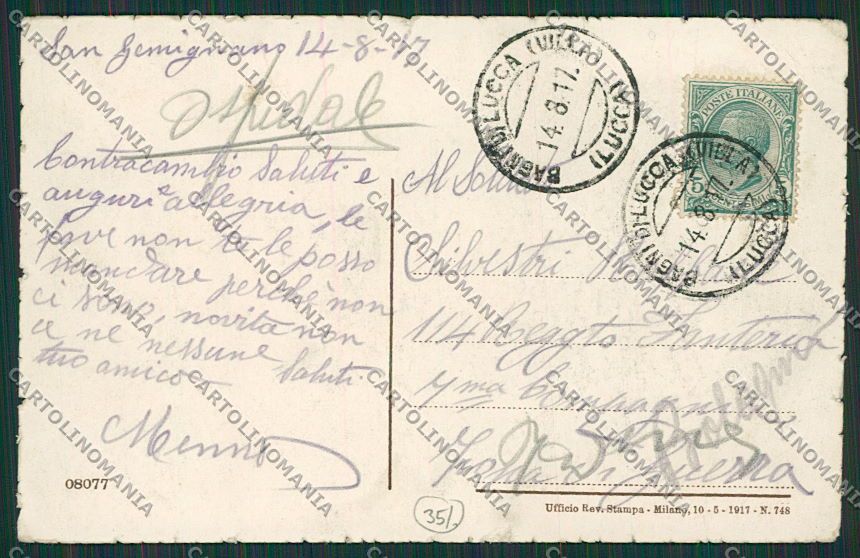 San Gemignano 14-8-17
Ospedale
Contracambio Saluti e
auguri e allegria, le
uve non te le posso
mandare perchè non
ci sono, novita non
ce ne nessune Saluti
tuo amico
08077
BAGNI DI LUCCA (VILLA) (LUCCA)
14.8.17.
POSTE ITALIANE
BAGNI DI LUCCA (VILLA) (LUCCA)
14.8.17.
Al Soldato
Silvestri
114 Reggto Fanteria
7ma Compagnia
Zona di Guerra
Bologna
35/.
Ufficio Rev. Stampa - Milano, 10 - 5 - 1917 - N. 748
CARTOLINOMANIA